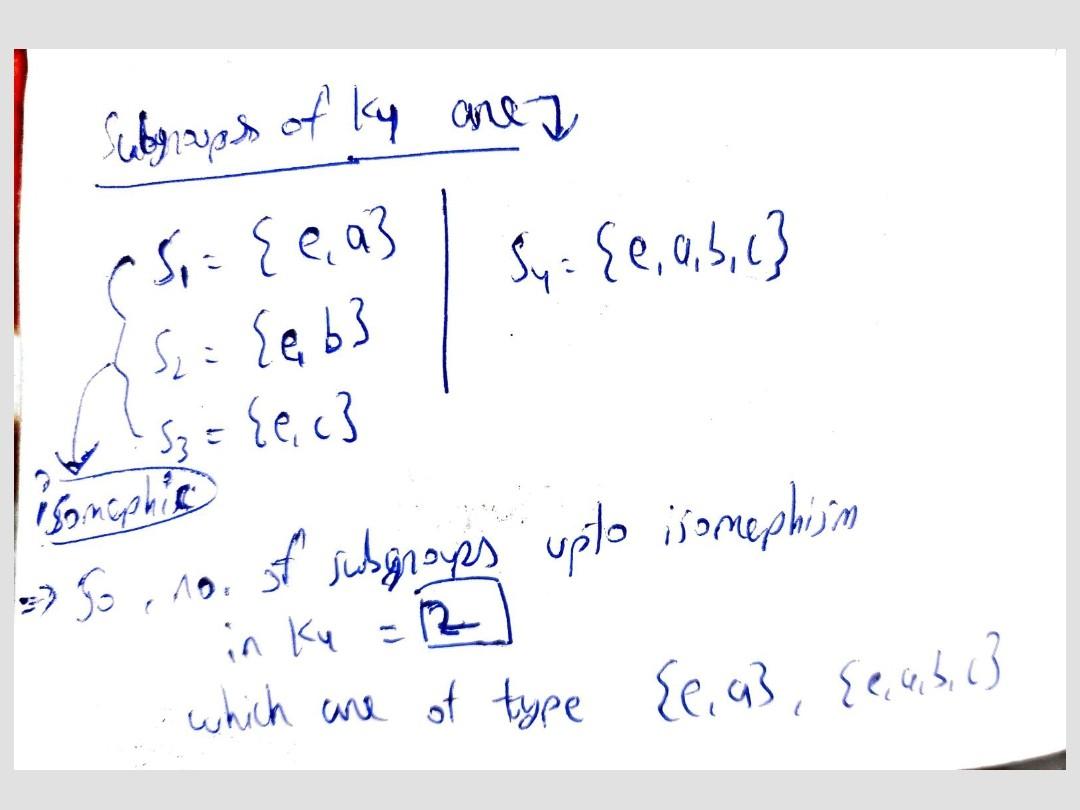 Subgroups of K4 are ↓
S1 = {e, a}
S2 = {e, b}
S3 = {e, c}
S4 = {e, a, b, c}
isomophic
⇒ So, no. of subgroups upto isomophism
in K4 = 2
which are of type {e, a}, {e, a, b, c}